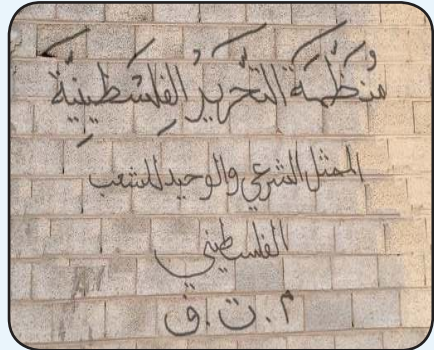 مُنَظَّمَة التَّحْريرُ الفِلَسْطينِيَّة
الممثل الشرعي والوحيد للشعب
الفلسطيني
م.ت.ف